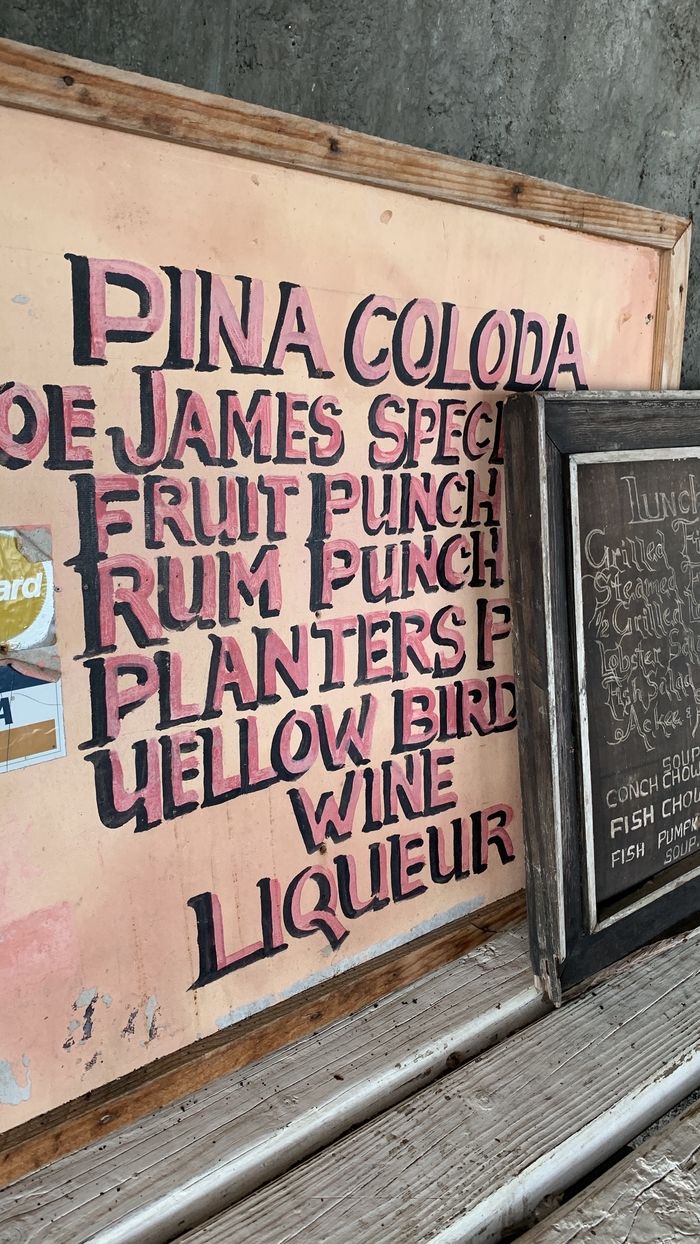 PINA COLODA
OE JAMES SPECI
FRUIT PUNCH
RUM PUNCH
PLANTERS P
YELLOW BIRD
WINE
LIQUEUR
ard
A
LUNC
Grilled
Steamed
½ Grilled
Lobster Sal
Fish Salad
Ackee
SOUP
CONCH CHOW
FISH CHOW
FISH PUMPK
SOUP.